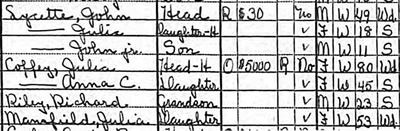 Lycette, John Head R $30 No M W 49 Wd.
— Julia Daughter-H v F W 18 S
— John jr. Son v M W 11 S
Coffey, Julia Head-H O $5000 R No F W 80 Wd
— Anna C. Daughter v F W 45 S
Riley, Richard Grandson v M W 23 S
Mansfield, Julia Daughter v F W 53 Wd.